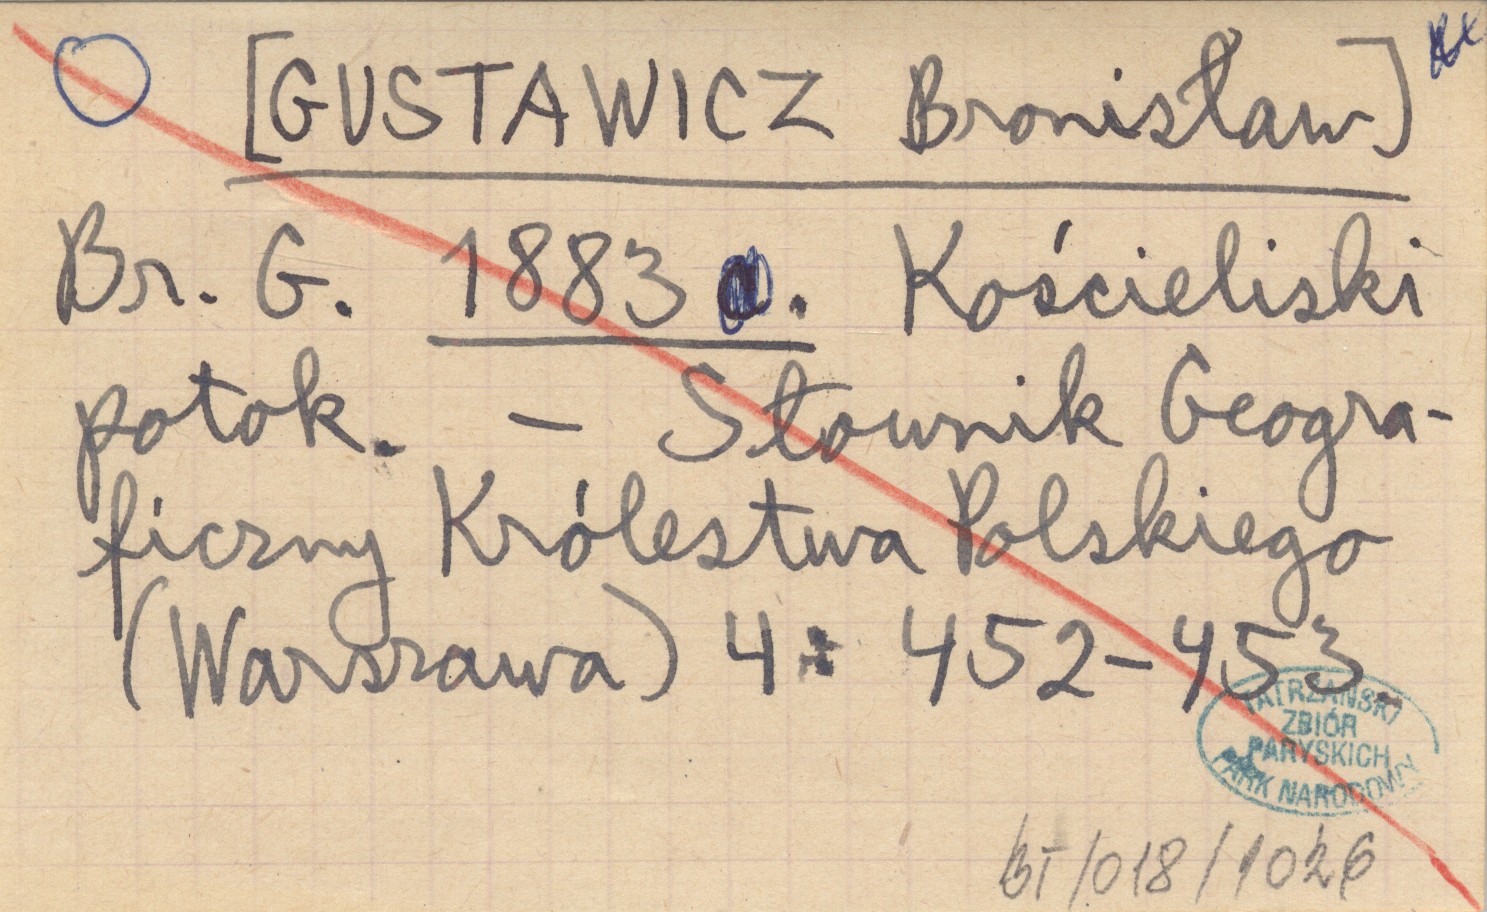 [GUSTAWICZ Bronisław]
Br. G. 1883 . Kościeliski
potok. – Słownik Geogra-
ficzny Królestwa Polskiego
(Warszawa) 4: 452–453.
TATRZAŃSKI
ZBIÓR
PARYSKICH
PARK NARODOWY
BT/018/1026